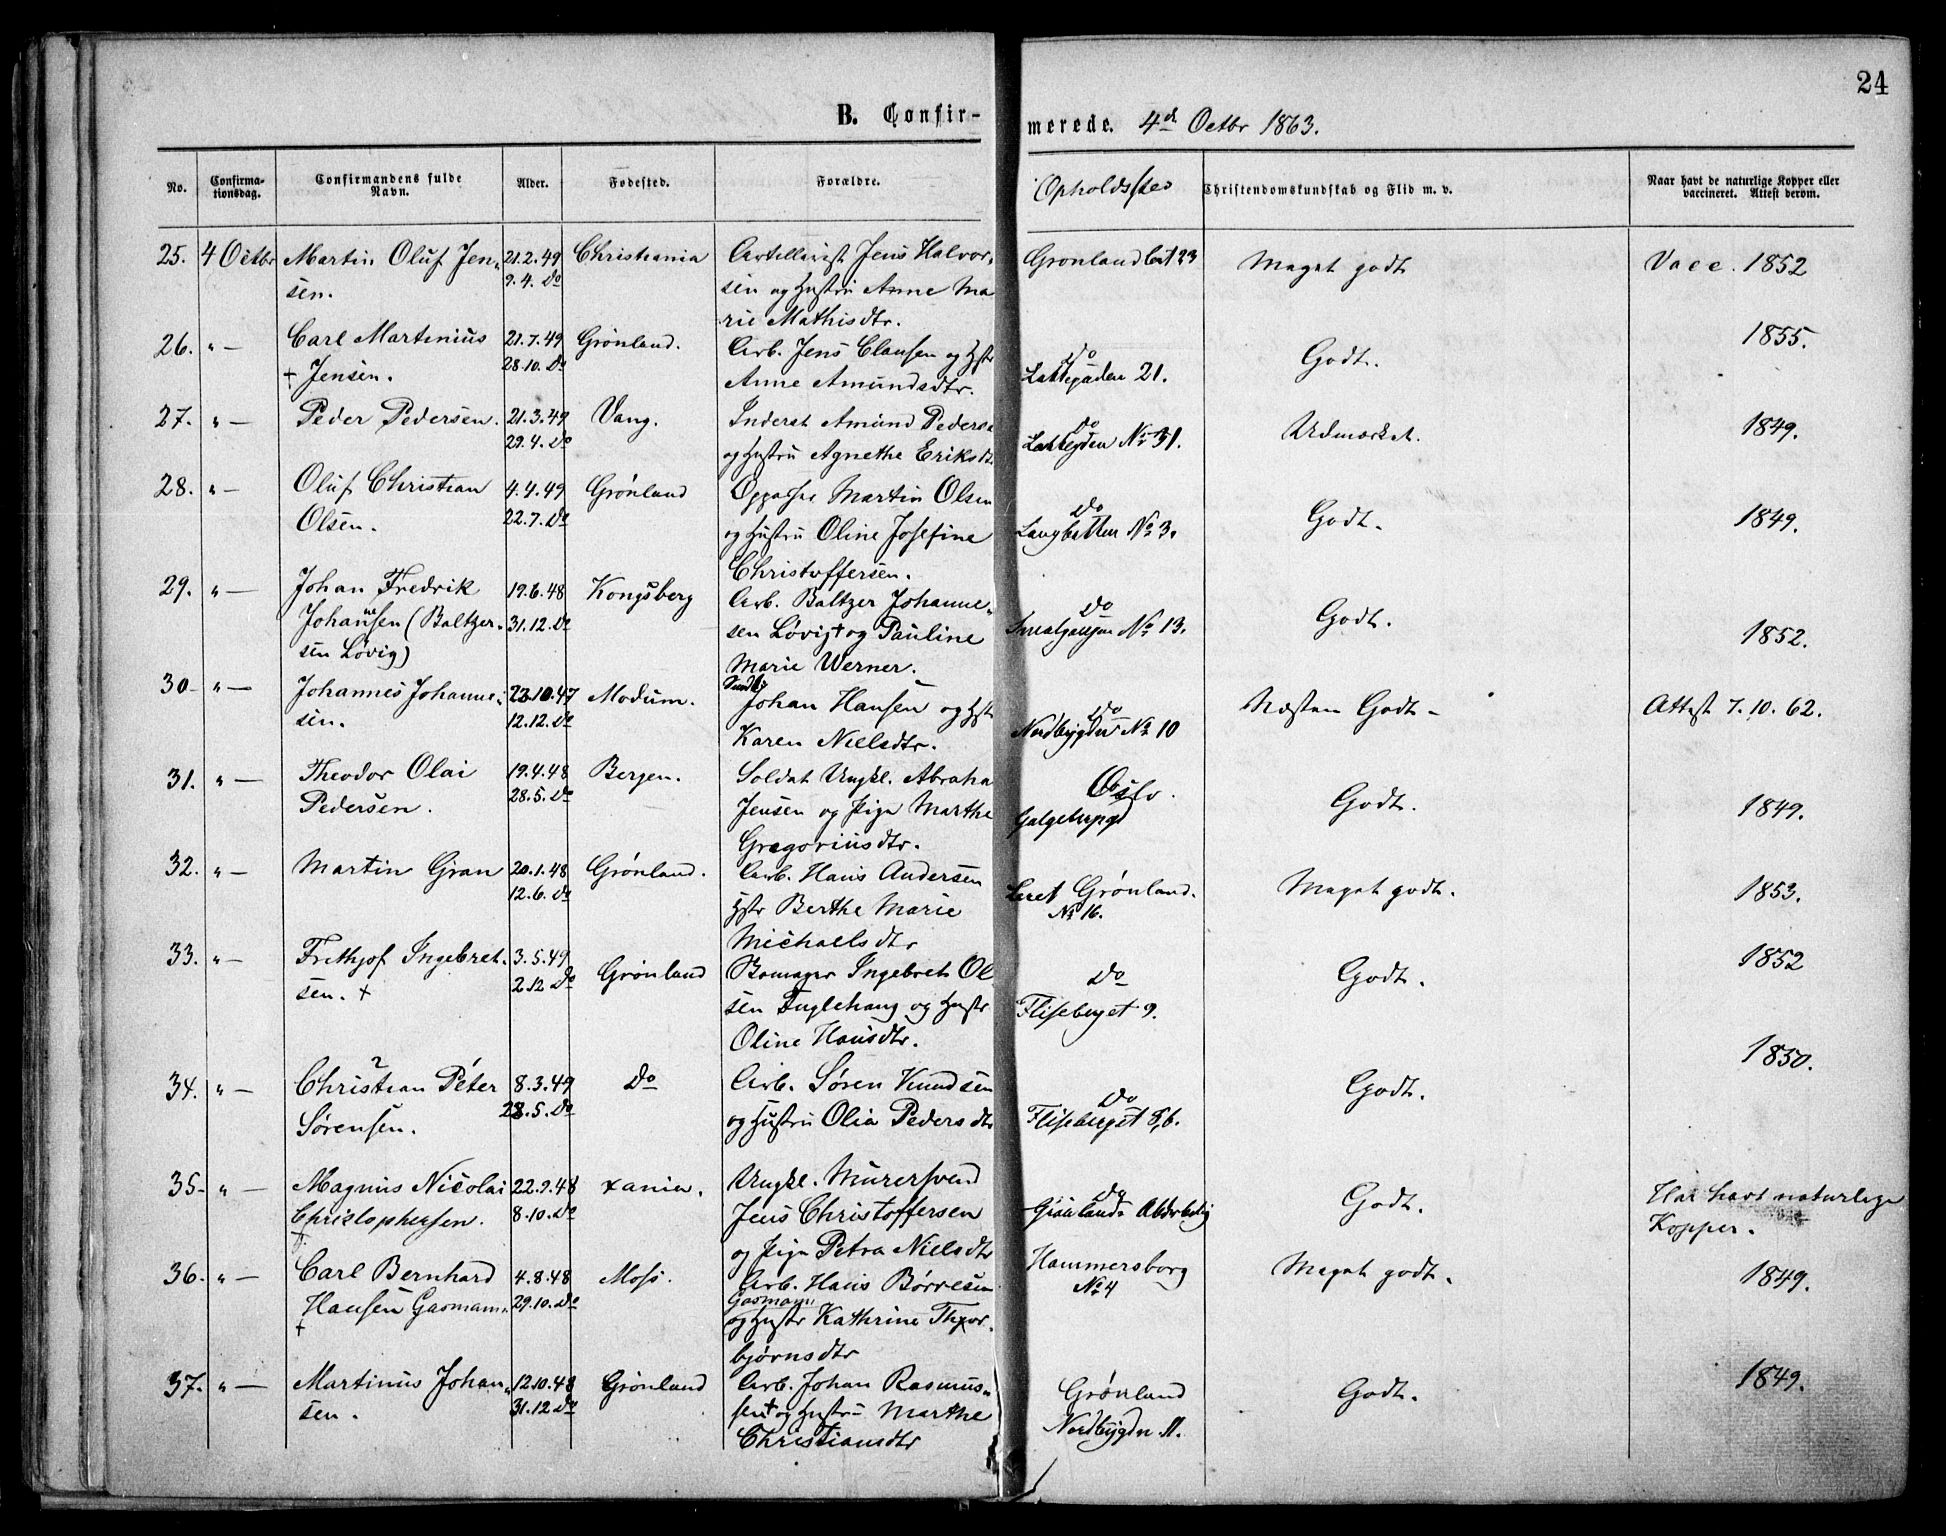 24
B. Confir-
merede. 4de Octbr 1863.
No.
Confirma-
tionsdag.
Confirmandens fulde
Navn.
Alder.
Fødested.
Forældre.
Opholdssted
Christendomskundskab og Flid m. v.
Naar havt de naturlige Kopper eller
vaccineret. Attest derom.
25. 4 Octbr Martin Oluf Jen- 21.2.49 Christiania Artellerist Jens Halvor- Grønland 23 Meget godt Vacc. 1852
sen. 9.4. Do sen og Hustru Anne Ma
rie Mathisdtr.
26. " — Carl Martinius 21.7.49 Grønland. Arb. Jens Clausen og Hstr Do Godt. 1855.
+ Jensen. 28.10. Do Anne Amundsdtr. Lakkegaden 21.
27. " — Peder Pedersen. 21.3.49 Vang. Inderst Amund Peders Do Udmærket. 1849.
29.4. Do og Hustru Agnethe Eriksdt. Lakkegden No 31.
28. " — Oluf Christian 4.4.49 Grønland Martin Olsen Do Godt. 1849.
Olsen. 22.7. Do og Hustru Oline Josefine No 3.
Christoffersen.
29. " — Johan Fredrik 19.6.48 Kongsberg Arb. Baltzer Johanne- Do Godt. 1852.
Johannesen (Baltzer- 31.12. Do sen Løvig+ og Pauline No 13.
sen Løvig) Marie Werner.
30 " — Johannes Johanne- 23.10.47 Modum. Johan Hansen og Hstr Do Næsten Godt - Attest 7.10.62.
sen. 12.12. Do Karen Nielsdtr. Nordbygden No 10
31. " — Theodor Olai 19.4.48 Bergen. Soldat Ungkl. Abraha Oslo. Godt. 1849.
Pedersen. 28.5. Do Jensen og Pige Marthe Galgebergd
Gregoriusdtr.
32. " — Martin Gran 20.1.48 Grønland. Arb. Hans Andersen Grønland. Meget godt. 1853.
12.6. Do Hstr Berthe Marie No 16.
Michaelsdtr
33. " — Frithjof Ingebret- 3.5.49 Grønland Ingebret Ol Do Godt. 1852
sen. + 2.12 Do sen Fuglehaug og Hustr Flisberget 9.
Oline Hansdtr.
34. " — Christian Peter 8.3.49 Do Arb. Søren Knudsen Do Godt. 1850.
Sørensen. 28.5. Do og Hustru Olia Pedersdtr Flisberget 8,6.
35 " — Magnus Nicolai 22.9.48 xania. Ungkl. Murersvend Do Godt. Har havt naturlige
Christophersen. 8.10. Do Jens Christoffersen Grønlands Kopper.
+ og Pige Petra Nielsdtr
36. " — Carl Bernhard 4.8.48 Moss. Arb. Hans Børresen Hammersborg Meget godt. 1849.
Hansen Gasmann. 29.10. Do Gasmann No 4
+ og Hustr Kathrine Thor-
bjørnsdtr
37. " — Martinus Johan- 12.10.48 Grønland Arb. Johan Rasmus- Grønland Godt. 1849.
sen. 31.12 Do sen+ og Hustru Marthe Nordbygdn 11.
Christiansdtr